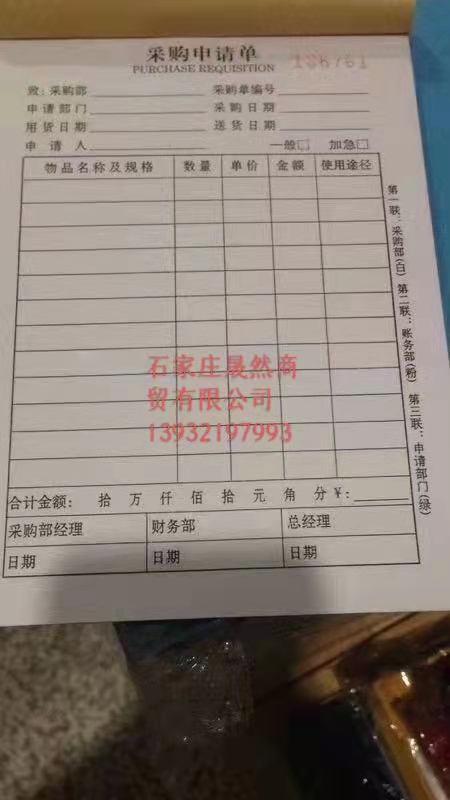 采购申请单
PURCHASE REQUISITION
136761
致：采购部 采购单编号
申请部门 采购日期
用货日期 送货日期
申请人 一般□ 加急□
物品名称及规格 数量 单价 金额 使用途径
第一联：采购部(白) 第二联：账务部(粉) 第三联：申请部门(绿)
石家庄晟然商
贸有限公司
13932197993
合计金额： 拾 万 仟 佰 拾 元 角 分 ¥:
采购部经理 财务部 总经理
日期 日期 日期